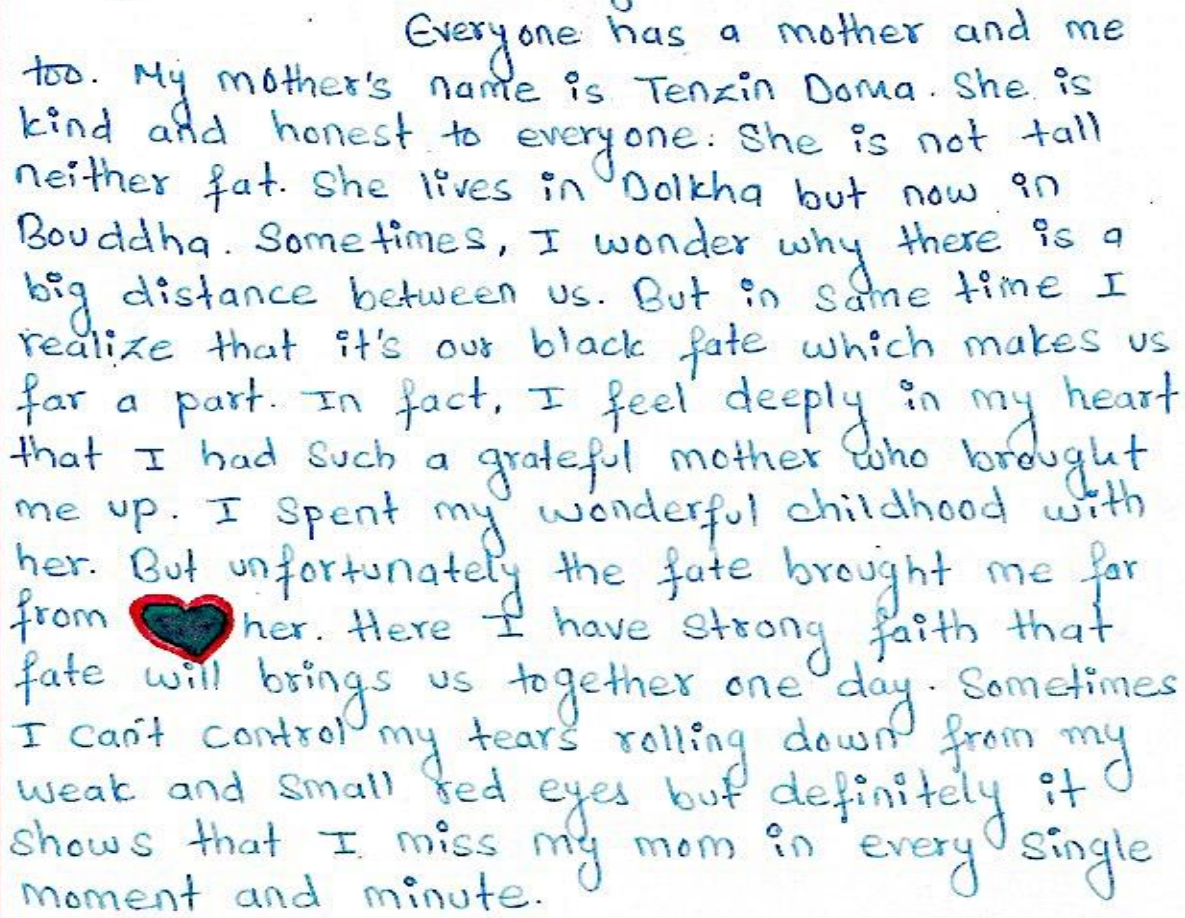 Everyone has a mother and me
too. My mother's name is Tenzin Doma. She is
kind and honest to everyone. She is not tall
neither fat. She lives in Dolkha but now in
Bouddha. Sometimes, I wonder why there is a
big distance between us. But in same time I
realize that it's our black fate which makes us
far a part. In fact, I feel deeply in my heart
that I had such a grateful mother who brought
me up. I spent my wonderful childhood with
her. But unfortunately the fate brought me far
from her. Here I have strong faith that
fate will brings us together one day. Sometimes
I can't control my tears rolling down from my
weak and small red eyes but definitely it
shows that I miss my mom in every single
moment and minute.